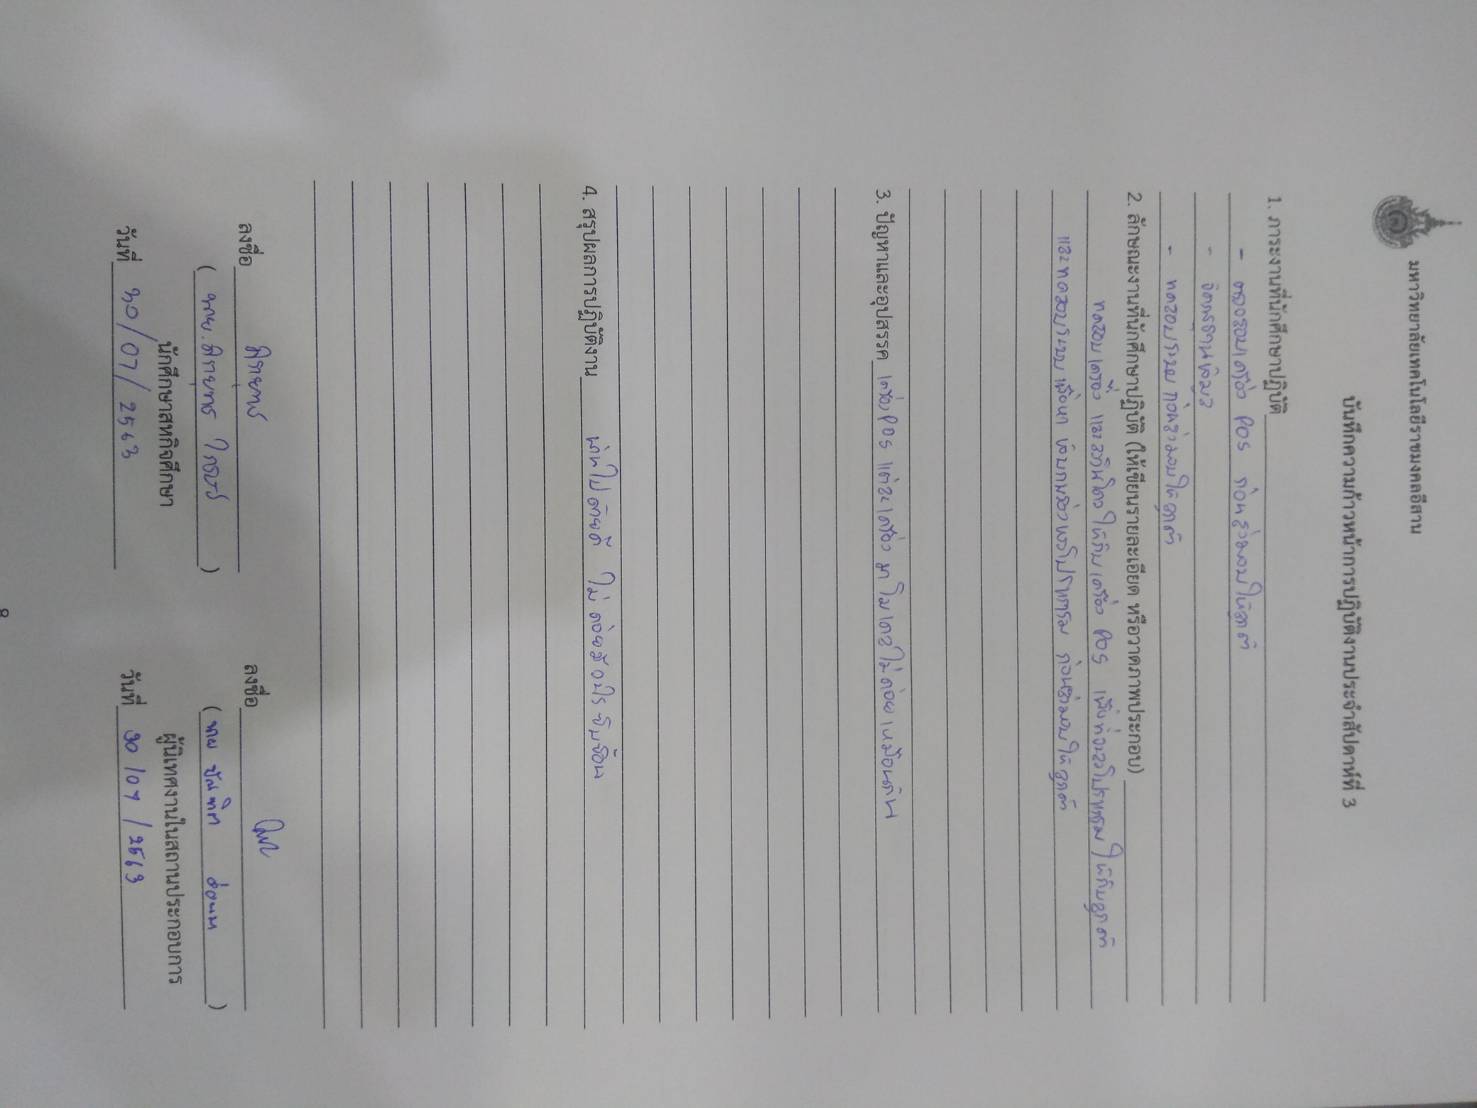 มหาวิทยาลัยเทคโนโลยีราชมงคลอีสาน
บันทึกความก้าวหน้าการปฏิบัติงานประจำสัปดาห์ที่ 3
1. ภาระงานที่นักศึกษาปฏิบัติ
- ตรวจสอบเครื่อง POS ก่อนส่งมอบให้ลูกค้า
-
- ทดสอบระบบ ก่อนส่งมอบให้ลูกค้า
2. ลักษณะงานที่นักศึกษาปฏิบัติ (ให้เขียนรายละเอียด หรือวาดภาพประกอบ)
ทดสอบเครื่อง และลงวินโดว์ให้กับเครื่อง POS เพื่อที่จะลงโปรแกรม ให้กับลูกค้า
และทดสอบระบบ เพื่อหา ข้อบกพร่องของโปรแกรม ก่อนส่งมอบให้ลูกค้า
3. ปัญหาและอุปสรรค เครื่อง POS แต่ละเครื่อง มาโมเดลไม่ค่อยเหมือนกัน
4. สรุปผลการปฏิบัติงาน ผ่านไปด้วยดี ไม่ค่อยมีอะไรซับซ้อน
ลงชื่อ
( นาย )
นักศึกษาสหกิจศึกษา
วันที่ 30/07/2563
ลงชื่อ
( นาย )
ผู้นิเทศงานในสถานประกอบการ
วันที่ 30/07/2563